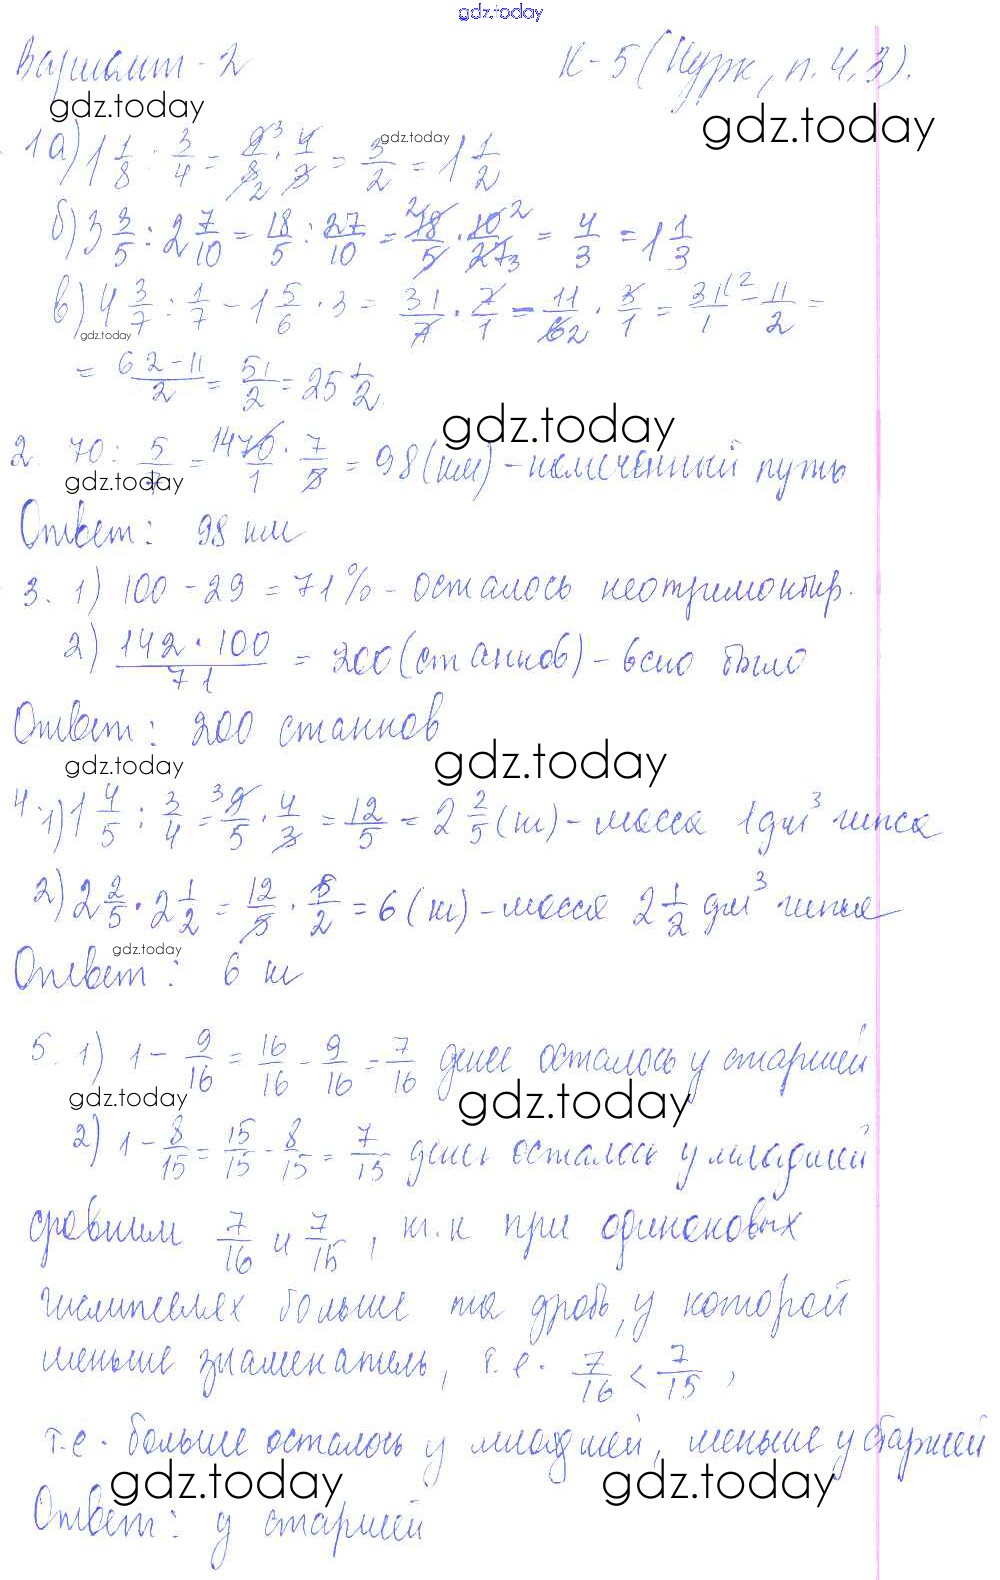 gdz.today
Вариант-2 К-5 (Нурк, п.4.3).
gdz.today gdz.today
1а) 1 1/8 : 3/4 = 9/8 · 4/3 = 3/2 = 1 1/2
gdz.today
б) 3 3/5 : 2 7/10 = 18/5 : 27/10 = 18/5 · 10/27 = 4/3 = 1 1/3
в) 4 3/7 : 1/7 - 1 5/6 · 3 = 31/7 · 7/1 - 11/6 · 3/1 = 31/1 - 11/2 =
gdz.today
= 62-11/2 = 51/2 = 25 1/2.
gdz.today
2. 70 : 5/7 = 70/1 · 7/5 = 98 (км) - намеченный путь
gdz.today
Ответ: 98 км
3. 1) 100 - 29 = 71% - осталось неотремонтир.
2) 142 · 100/71 = 200 (станков) - всио было
Ответ: 200 станков
gdz.today gdz.today
4. 1) 1 4/5 : 3/4 = 9/5 · 4/3 = 12/5 = 2 2/5 (кг) - масса 1 дм³ гипса
2) 2 2/5 · 2 1/2 = 12/5 · 5/2 = 6 (кг) - масса 2 1/2 дм³ гипса
gdz.today
Ответ: 6 кг
5. 1) 1 - 9/16 = 16/16 - 9/16 = 7/16 денег осталось у старшей
gdz.today gdz.today
2) 1 - 8/15 = 15/15 - 8/15 = 7/15 денег осталось у младшей
сравним 7/16 и 7/15, т.к при одинаковых
числителях больше та дробь, у которой
меньше знаменатель, т.е. 7/16 < 7/15,
т.е. больше осталось у младшей, меньше у старшей
gdz.today gdz.today
Ответ: у старшей